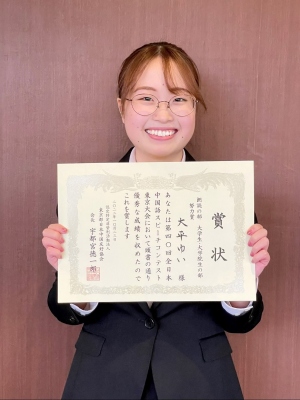 賞状
朗読の部 大学生・大学院生の部
努力賞
大平ゆい 様
あなたは第四〇回全日本
中国語スピーチコンテスト
東京大会において頭書の通り
優秀な成績を収めたので
これを賞します
東京都日本中国友好協会
会長 宇都宮徳一郎